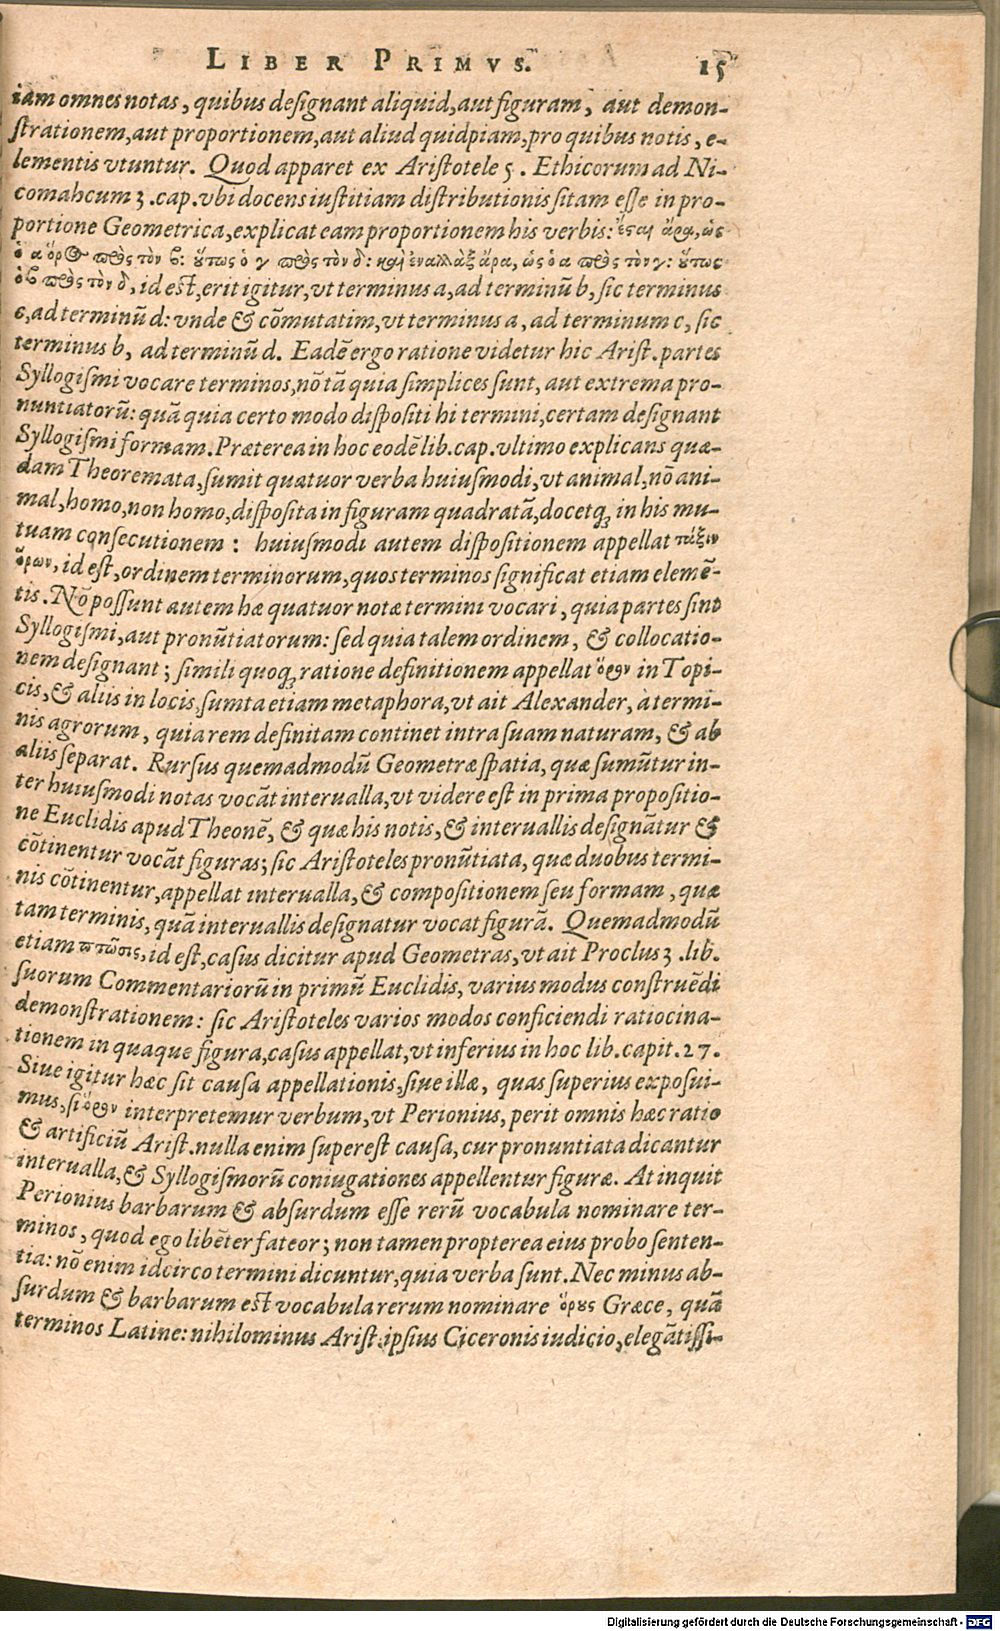 LIBER PRIMVS. 15
iam omnes notas, quibus designant aliquid, aut figuram, aut demon-
strationem, aut proportionem, aut aliud quidpiam, pro quibus notis, e-
lementis vtuntur. Quod apparet ex Aristotele 5. Ethicorum ad Ni-
comahcum 3. cap. vbi docens iustitiam distributionis sitam esse in pro-
portione Geometrica, explicat eam proportionem his verbis: ἔσαι ἄρα, ὡς
ὁ α ὅρος πρὸς τὸν β: οὕτως ὁ γ πρὸς τὸν δ: καὶ ἐναλλὰξ ἄρα, ὡς ὁ α πρὸς τὸν γ: οὕτως
ὁ β πρὸς τὸν δ, id est, erit igitur, vt terminus a, ad terminũ b, sic terminus
c, ad terminũ d: vnde & cõmutatim, vt terminus a, ad terminum c, sic
terminus b, ad terminũ d. Eadẽ ergo ratione videtur hic Arist. partes
Syllogismi vocare terminos, nõ tã quia simplices sunt, aut extrema pro-
nuntiatorũ: quã quia certo modo dispositi hi termini, certam designant
Syllogismi formam. Præterea in hoc eodẽ lib. cap. vltimo explicans quæ-
dam Theoremata, sumit quatuor verba huiusmodi, vt animal, nõ ani-
mal, homo, non homo, disposita in figuram quadratã, docetq; in his mu-
tuam consecutionem : huiusmodi autem dispositionem appellat τάξιν
ὅρων, id est, ordinem terminorum, quos terminos significat etiam elemẽ-
tis. Nõ possunt autem hæ quatuor notæ termini vocari, quia partes sint
Syllogismi, aut pronũtiatorum: sed quia talem ordinem, & collocatio-
nem designant; simili quoq; ratione definitionem appellat ὅρον in Topi-
cis, & aliis in locis, sumta etiam metaphora, vt ait Alexander, à termi-
nis agrorum, quia rem definitam continet intra suam naturam, & ab
aliis separat. Rursus quemadmodũ Geometræ spatia, quæ sumũtur in-
ter huiusmodi notas vocãt interualla, vt videre est in prima propositio-
ne Euclidis apud Theonẽ, & quæ his notis, & interuallis designãtur &
cõtinentur vocãt figuras; sic Aristoteles pronũtiata, quæ duobus termi-
nis cõtinentur, appellat interualla, & compositionem seu formam, quæ
tam terminis, quã interuallis designatur vocat figurã. Quemadmodũ
etiam πτῶσις, id est, casus dicitur apud Geometras, vt ait Proclus 3. lib.
suorum Commentariorũ in primũ Euclidis, varius modus construẽdi
demonstrationem: sic Aristoteles varios modos conficiendi ratiocina-
tionem in quaque figura, casus appellat, vt inferius in hoc lib. capit. 27.
Siue igitur hæc sit causa appellationis, siue illæ, quas superius exposui-
mus, si ὅρον interpretemur verbum, vt Perionius, perit omnis hæc ratio
& artificiũ Arist. nulla enim superest causa, cur pronuntiata dicantur
interualla, & Syllogismorũ coniugationes appellentur figuræ. At inquit
Perionius barbarum & absurdum esse rerũ vocabula nominare ter-
minos, quod ego libẽter fateor; non tamen propterea eius probo senten-
tia: nõ enim idcirco termini dicuntur, quia verba sunt. Nec minus ab-
surdum & barbarum est vocabula rerum nominare ὅρους Græce, quã
terminos Latine: nihilominus Arist. ipsius Ciceronis iudicio, elegãtissi-
Digitalisierung gefördert durch die Deutsche Forschungsgemeinschaft - DFG